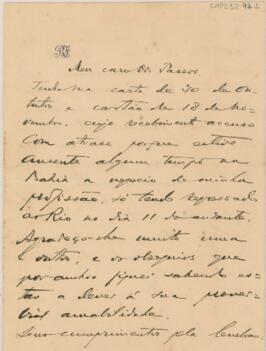 Meu caro Dr. Passos.
Tenho sua carta de 30 de Ou-
tubro e cartão de 18 de No-
vembro, cujo recebimento accuso
com atraso porque estive
ausente algum tempo na
Bahia a negocio de minha
profissão, só tendo regressado
ao Rio no dia 11 do andante.
Agradeço-lhe muito uma
e outro, e os obsequios que
por ambos fiquei sabendo es-
tar a dever á sua prover-
bial amabilidade.
cumprimentos pela